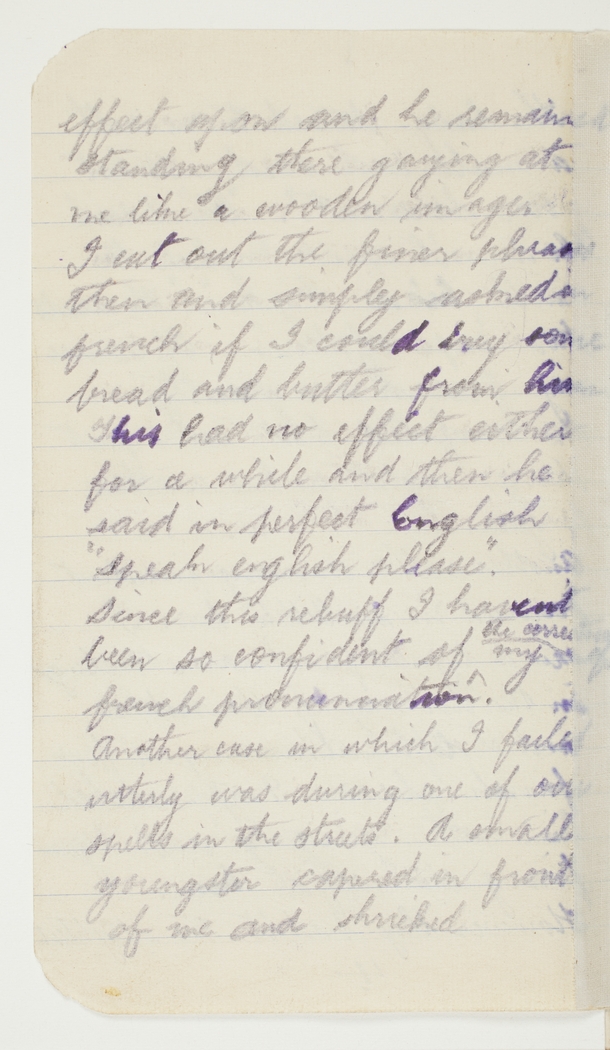 effect upon and he remain
standing there gazing at
me like a wooden image.
I cut out the finer phras
then and simply asked in
french if I could buy som
bread and butter from him
This had no effect either
for a while and then he
said in perfect English
"speak english please".
Since this rebuff I havent
been so confident of the correc my
french pronunciation.
Another case in which I faile
utterly was during one of our
spells in the streets. A small
youngster capered in front
of me and shrieked